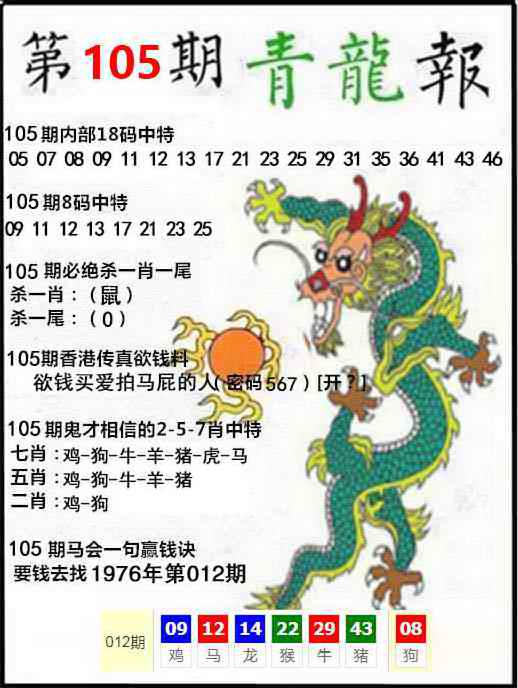 第105期 青龍報
105期内部18码中特
05 07 08 09 11 12 13 17 21 23 25 29 31 35 36 41 43 46
105期8码中特
09 11 12 13 17 21 23 25
105 期必绝杀一肖一尾
杀一肖：（鼠）
杀一尾：（0）
105期香港传真欲钱料
欲钱买爱拍马屁的人(密码567）[开？]
105期鬼才相信的2-5-7肖中特
七肖：鸡-狗-牛-羊-猪-虎-马
五肖：鸡-狗-牛-羊-猪
二肖：鸡-狗
105 期马会一句赢钱诀
要钱去找1976年第012期
012期 09 12 14 22 29 43 08
鸡 马 龙 猴 牛 猪 狗